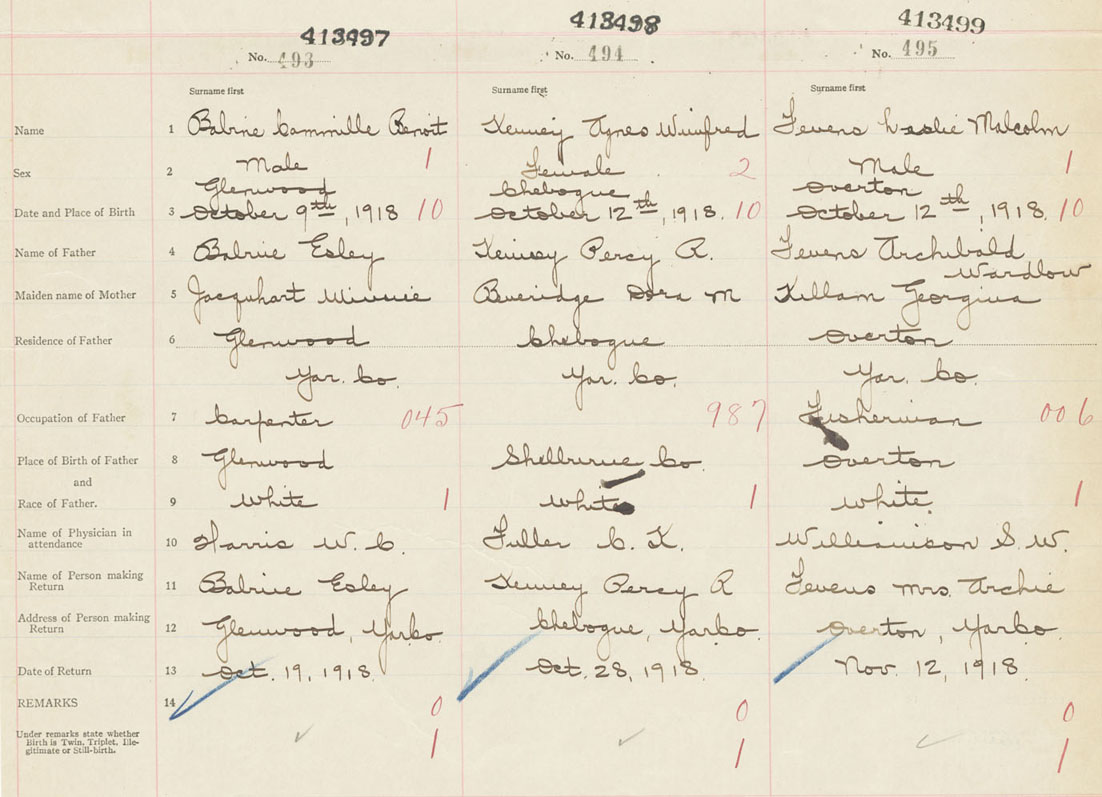 413497 413498 413499
No. 493 No. 494 No. 495
Surname first Surname first Surname first
Name 1 Babine Cammille Benoit Kenney Agnes Winifred Fevens Leslie Malcolm
Sex 2 Male 1 Female 2 Male 1
Glenwood Chebogue Overton
Date and Place of Birth 3 October 9th, 1918 10 October 12th, 1918. 10 October 12th, 1918. 10
Name of Father 4 Babine Esley Kenney Percy R. Fevens Archibald
Wardlow
Maiden name of Mother 5 Jacquhart Minnie Beveridge Dora M Killam Georgina
Residence of Father 6 Glenwood Chebogue Overton
Yar. Co. Yar. Co. Yar. Co.
Occupation of Father 7 Carpenter 045 987 Fisherman 006
Place of Birth of Father 8 Glenwood Shelburne Co. Overton
and
Race of Father. 9 White 1 White 1 White. 1
Name of Physician in
attendance 10 Harris W. C. Fuller C. K. Williamson S. W.
Name of Person making
Return 11 Babine Esley Kenney Percy R Fevens Mrs. Archie
Address of Person making
Return 12 Glenwood, Yar Co. Chebogue, Yar Co. Overton, Yar Co.
Date of Return 13 Oct. 19, 1918. Oct. 28, 1918. Nov. 12, 1918.
REMARKS 14 0 0 0
Under remarks state whether
Birth is Twin, Triplet, Ille-
gitimate or Still-birth. 1 1 1